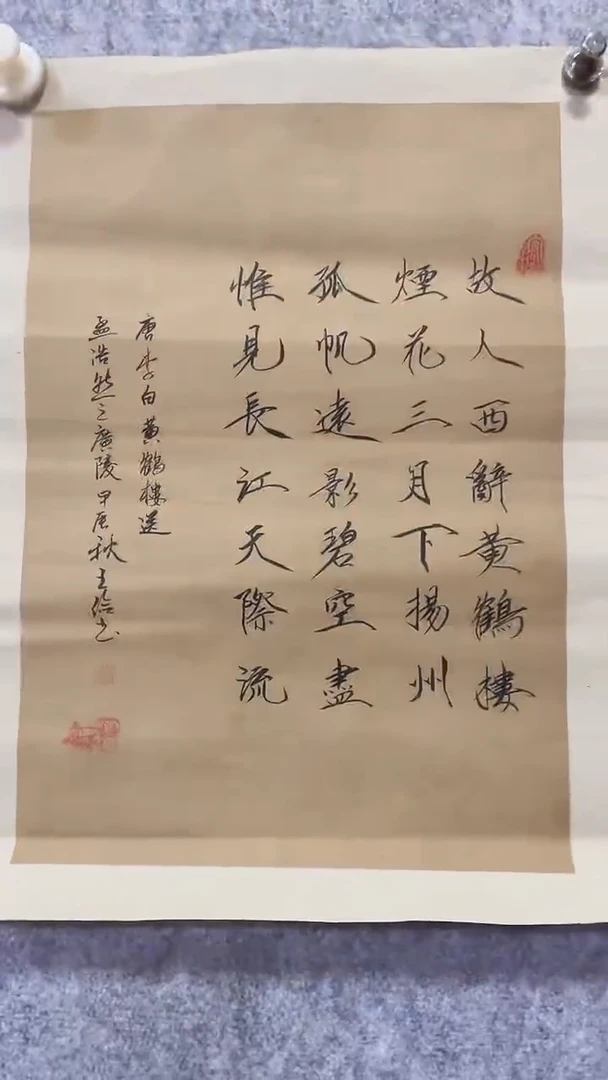 故人西辭黄鶴樓
煙花三月下揚州
孤帆遠影碧空盡
惟見長江天際流
唐李白黄鶴樓送
孟浩然之廣陵甲辰秋王信书